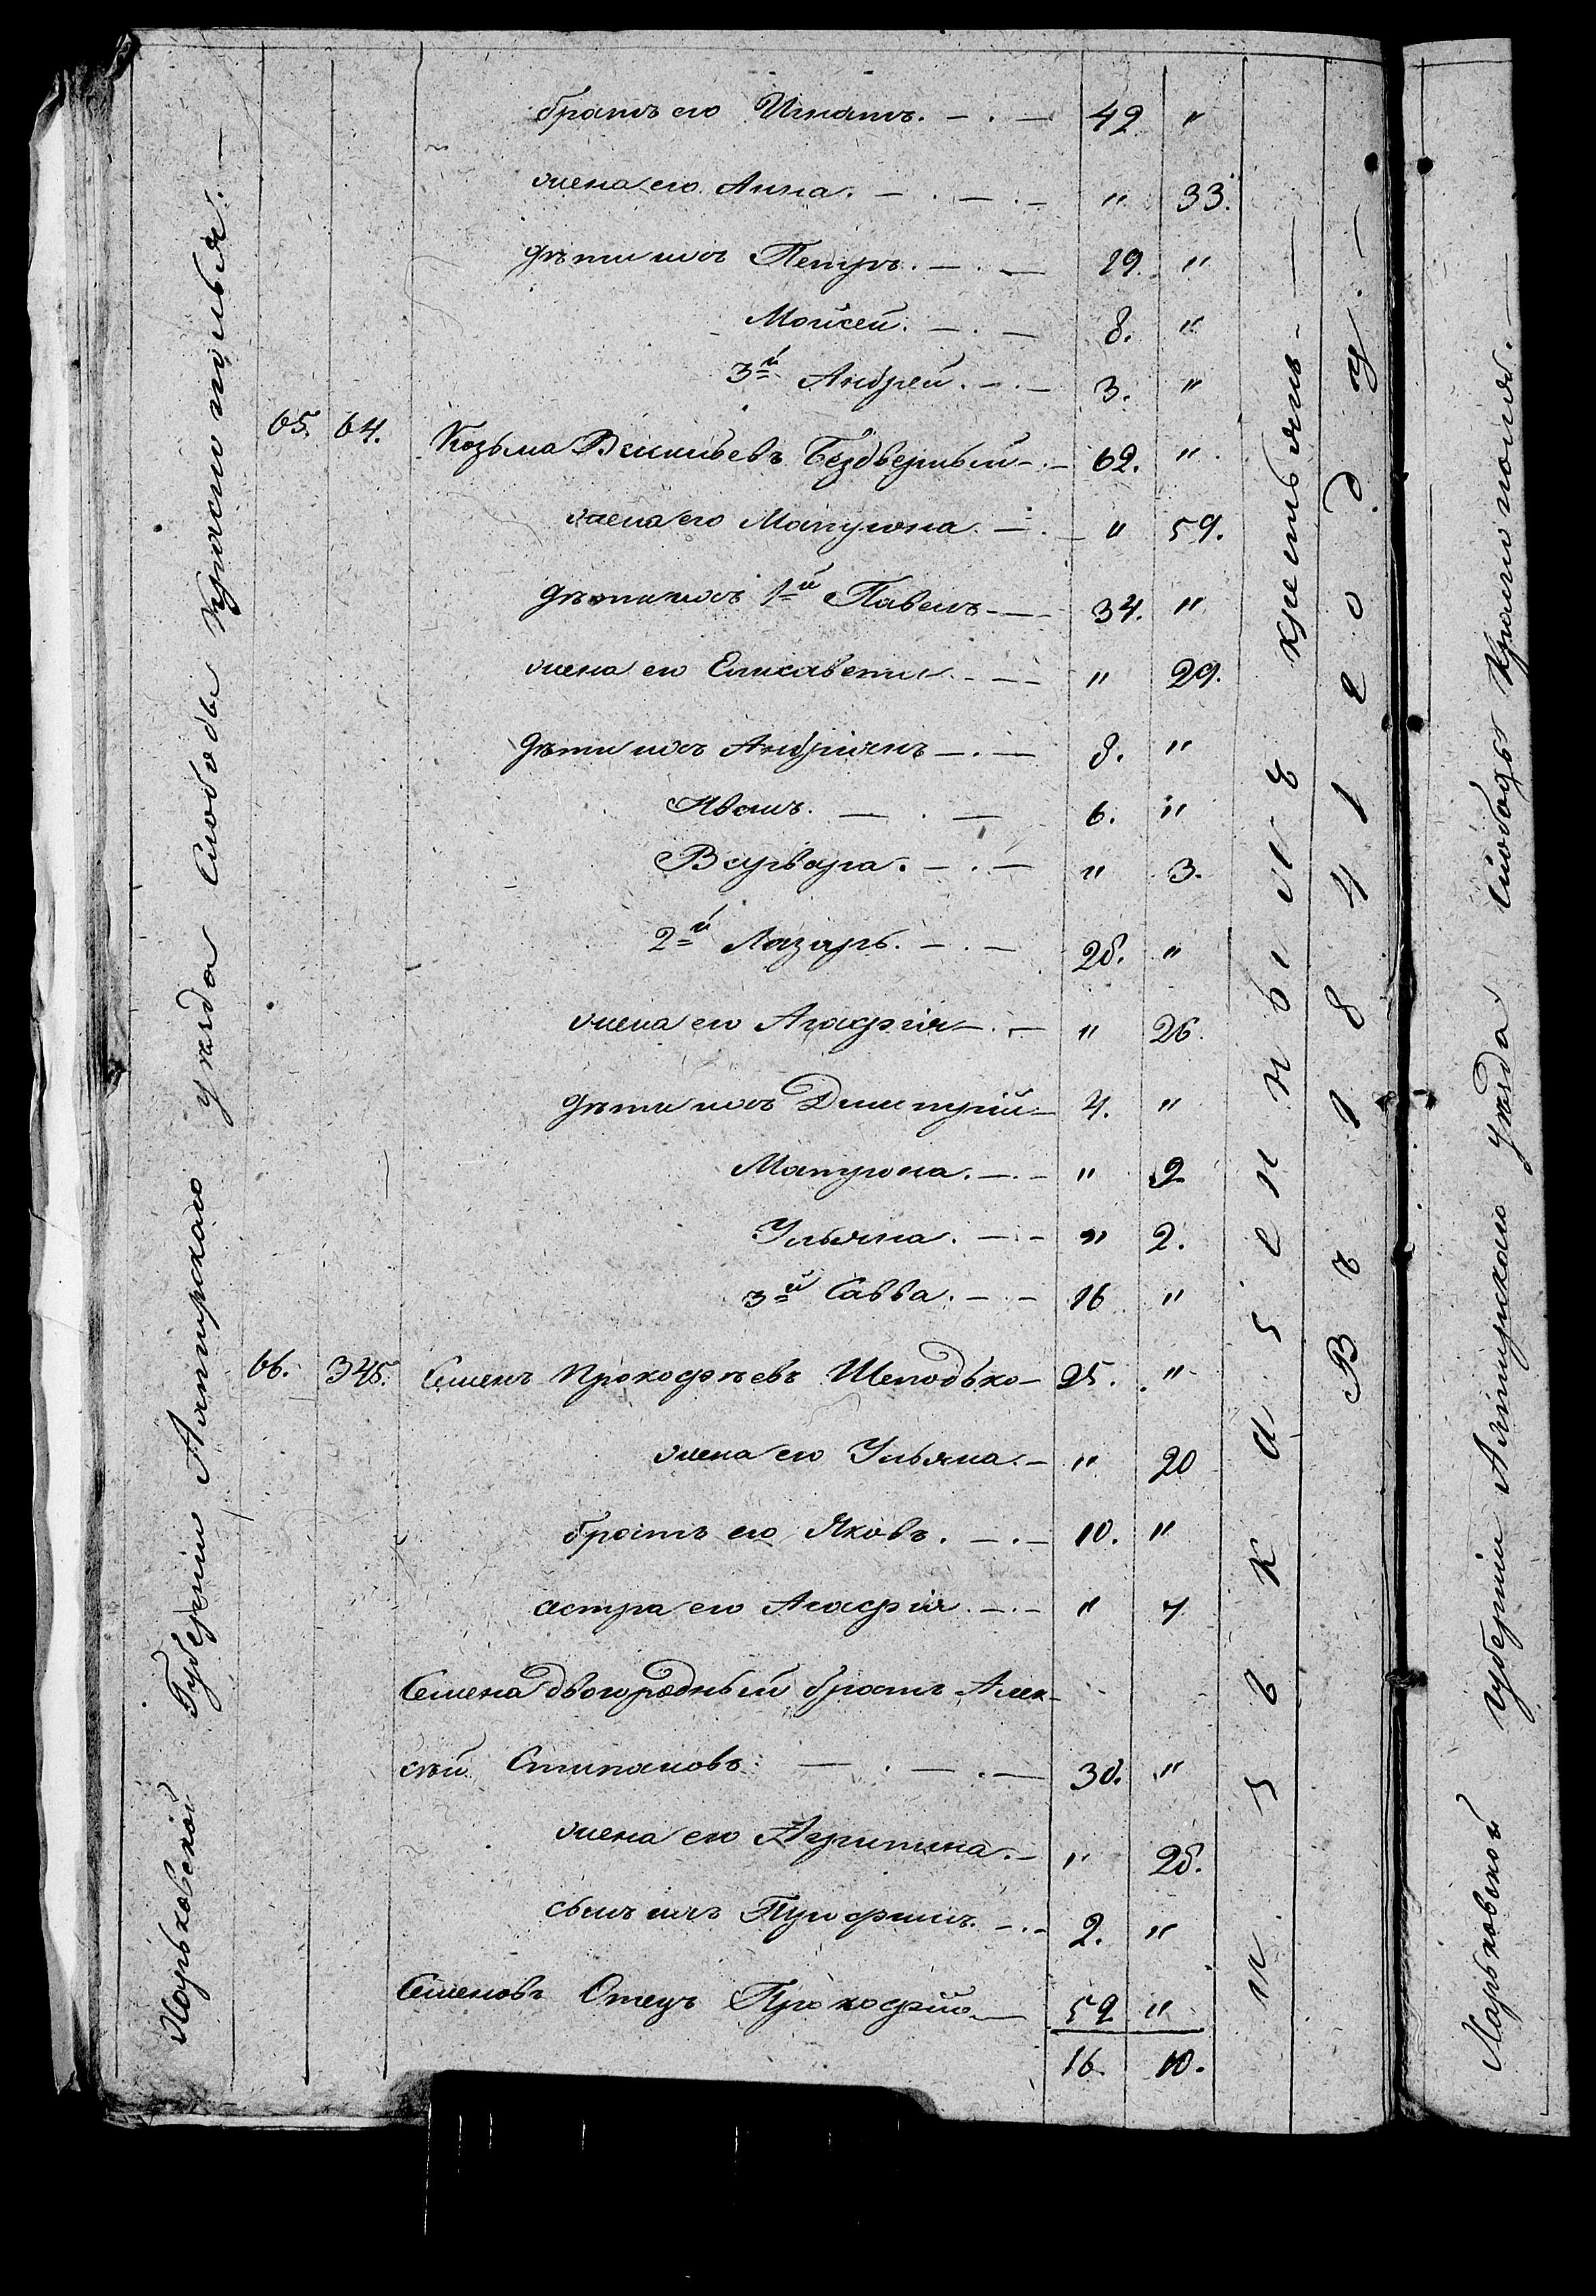 Харьковской Губерніи Ахтырскаго уезда Слободы Краснополья. —
братъ его Игнатъ. — . — 42 "
жена его Анна. — . — . — " 33.
дѣти ихъ Петръ. — . — 19. "
Мойсей. — . — 8. "
3й Андрей. — . — 3. "
65. 64. Козьма Васильевъ Бездверный — . — 62. "
жена его Матрона — . — " 59.
дѣти ихъ 1й Павелъ — — 34. "
жена его Елисавета — — " 29.
дѣти ихъ Андріянъ — . — 8. "
Иванъ. — . — 6. "
Варвара. — . — " 3.
2й Лазарь. — . — 28. "
жена его Агафія — . — " 26.
дѣти ихъ Димитрій — 4. "
Матрона. — . — " 9
Ульяна. — . — " 2.
3й Савва. — . — 16 "
66. 345. Семенъ Прокофьевъ Шелодько — 25. "
жена его Ульяна. — " 20
братъ его Яковъ. — . — 10. "
сестра его Агафія. — . — " 7
Семена двоюродный братъ Алек-
сѣй Степановъ: — . — . — 38. "
жена его " 28.
сынъ ихъ Трифинъ. — . — 2. "
Семеновъ Отецъ Прокофій — 59 "
16. 10.
крестьянъ —
Въ 1841 году. —
Харьковской губерніи Ахтырскаго Уезда Слободы Краснополя. —